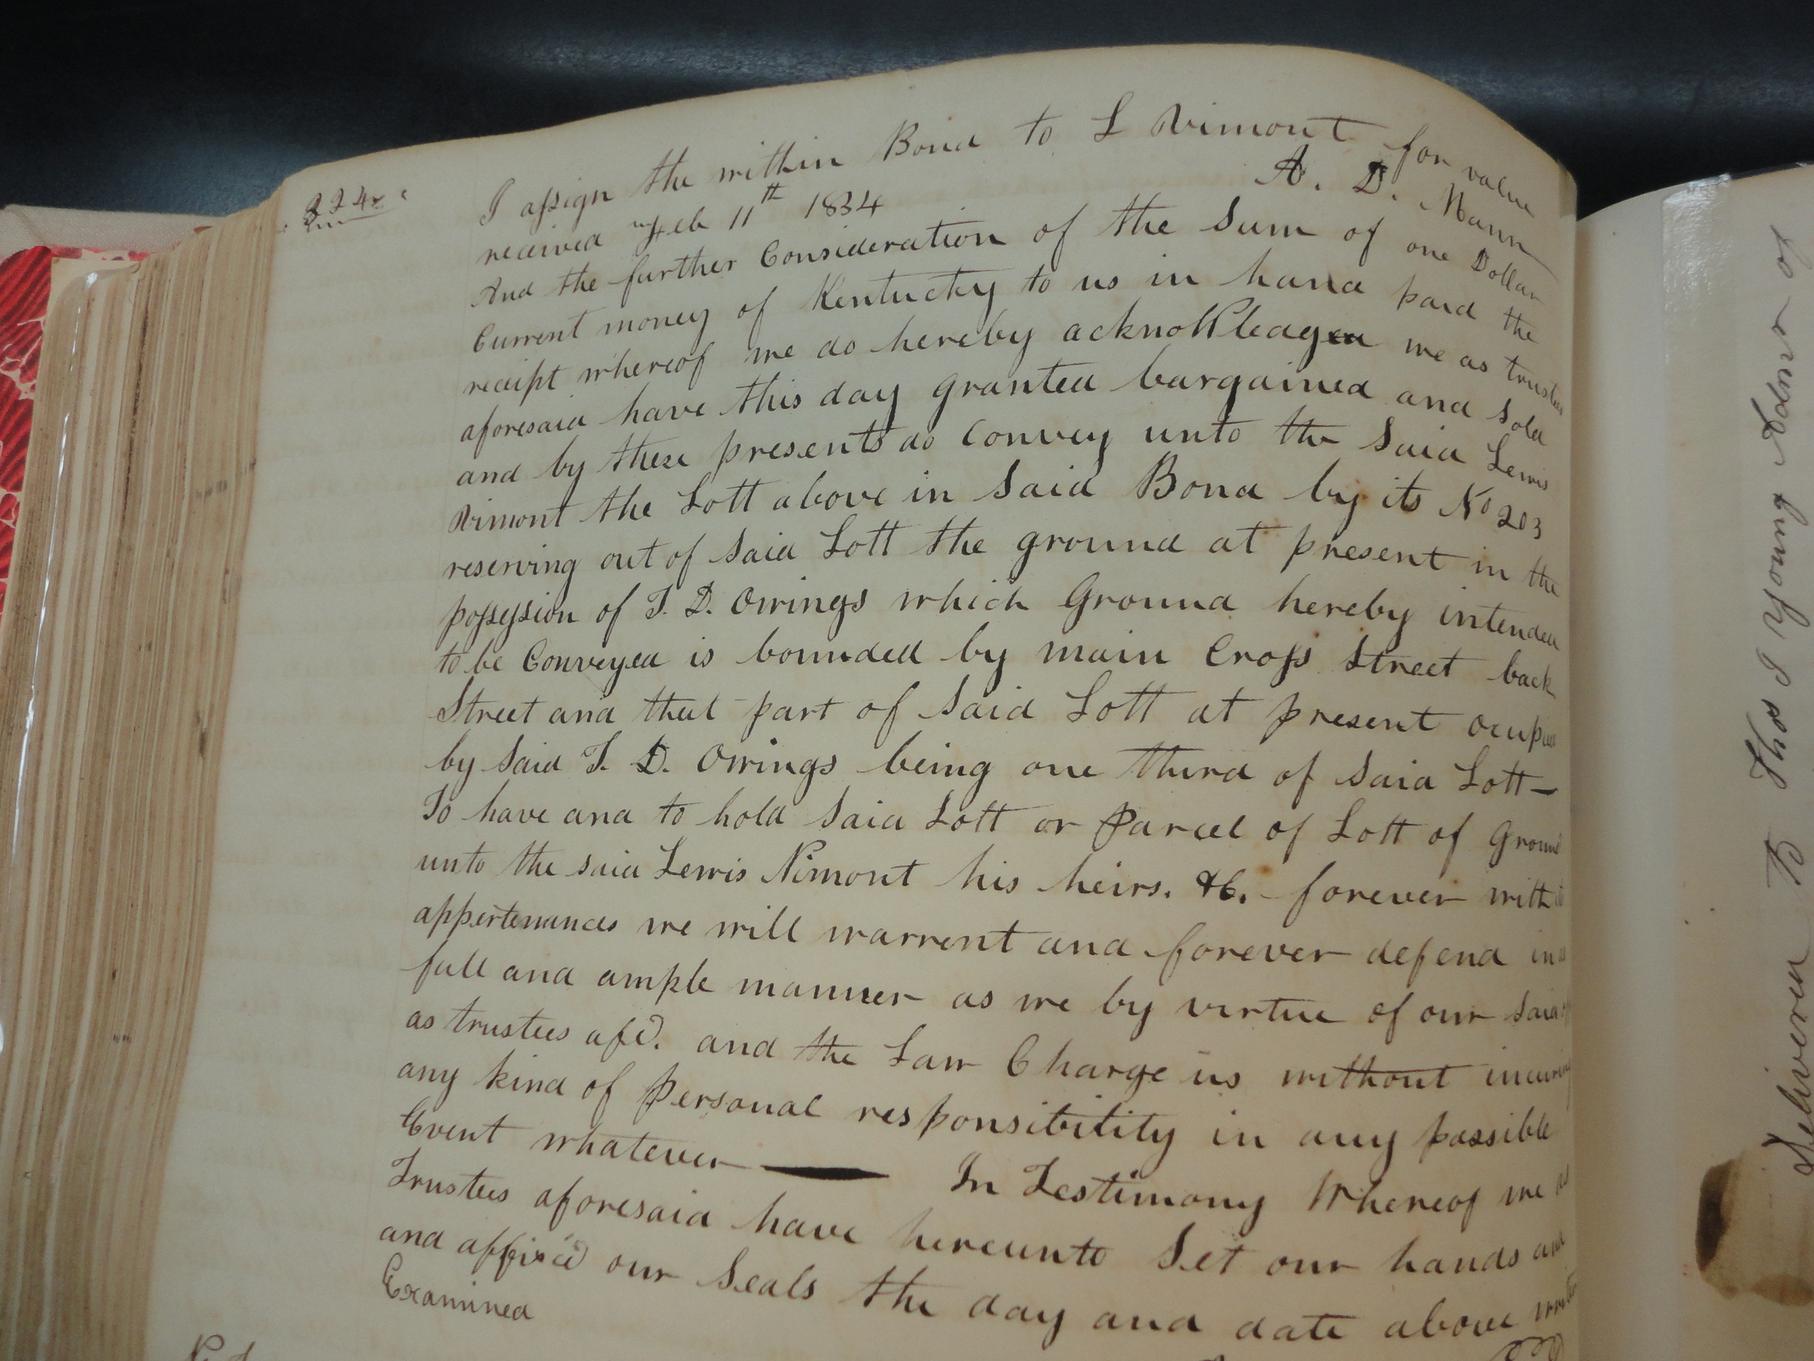 224
I assign the within Bond to L Vimont for value
received Feb 11th 1834
A. D. Mann
And the further Consideration of the Sum of one Dollar
Current money of Kentucky to us in hand paid the
receipt whereof we do hereby acknowledge we as trustees
aforesaid have this day granted bargained and sold
and by these presents do Convey unto the Said Lewis
Vimont the Lott above in Said Bond by its No 203
reserving out of Said Lott the ground at present in the
possession of T. D. Owings which Ground hereby intended
to be Conveyed is bounded by main Cross Street back
Street and that part of Said Lott at present
by Said T. D. Owings being one third of Said Lott—
To have and to hold Said Lott or Parcel of Lott of Ground
unto the said Lewis Vimont his heirs. &c. forever with
appertenances we will warrent and forever defend in
full and ample manner as we by virtue of our Said
as trustees afd. and the Law Charge us without
any kind of Personal responsibility in any possible
Event whatever — In Testimony Whereof we as
Trustees aforesaid have hereunto Set our hands and
and affix'd our Seals the day and date above
Examined
Delivered To Thos I Young Admr of